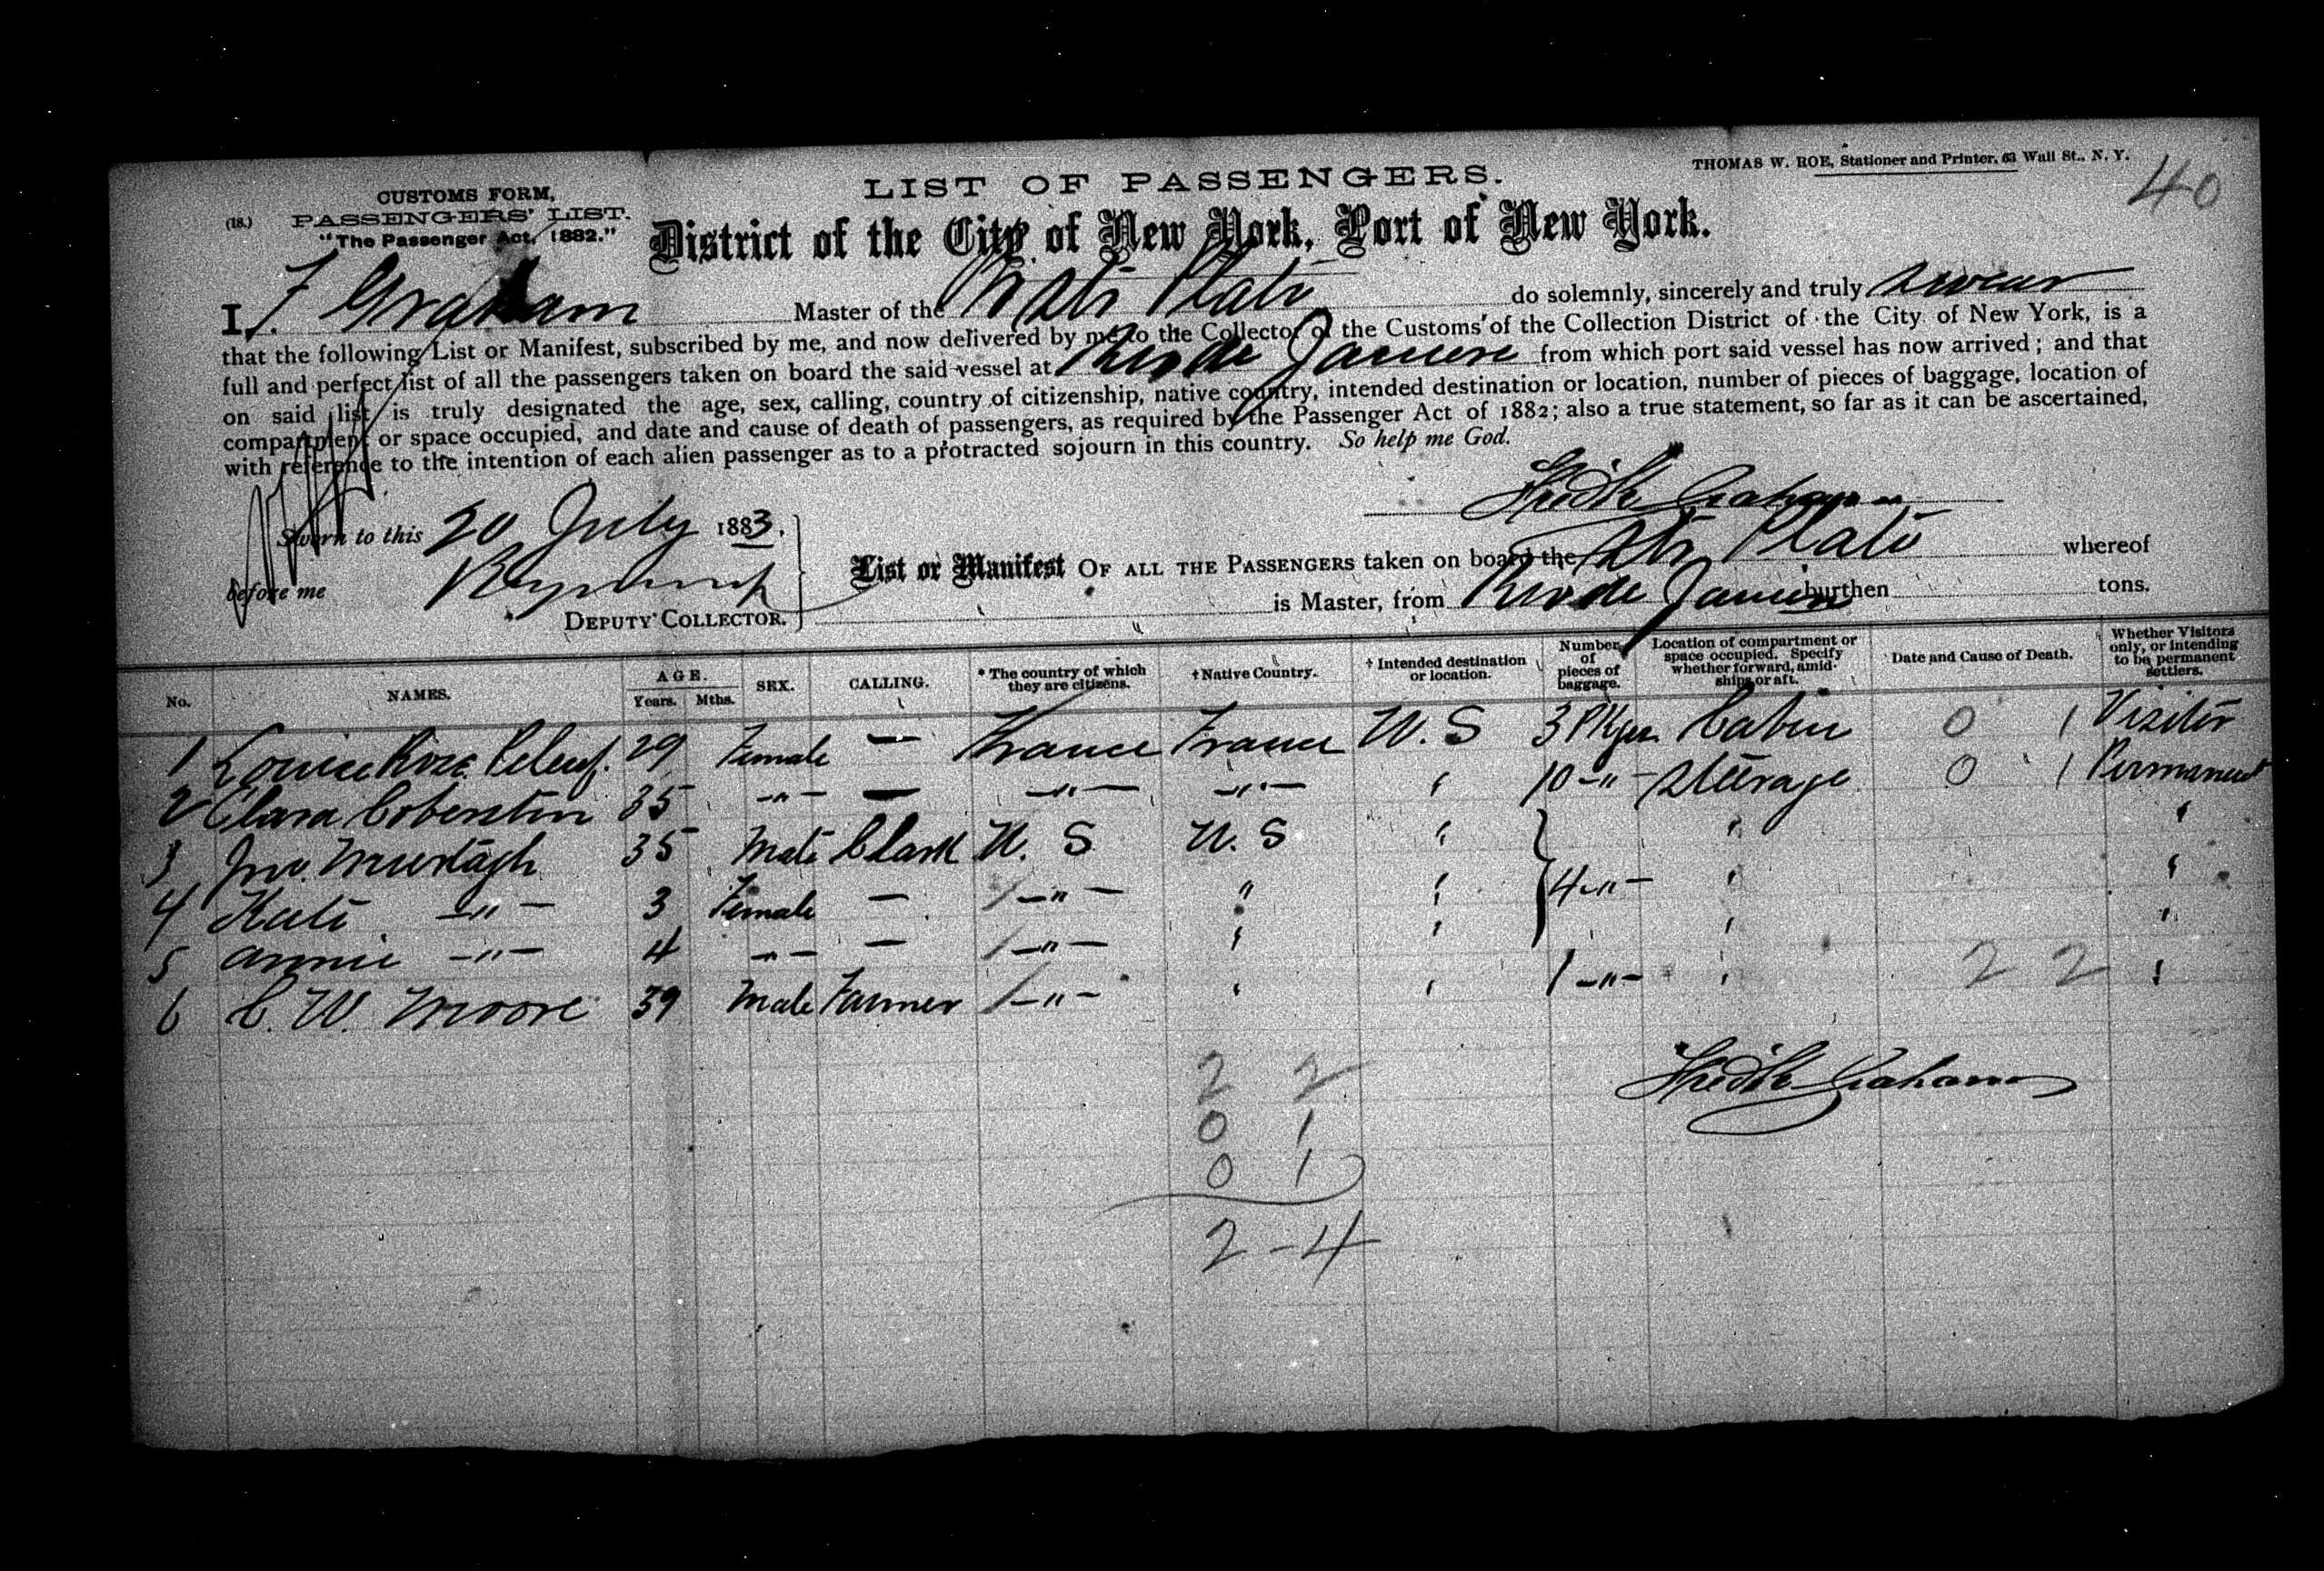 THOMAS W. ROE, Stationer and Printer, 63 Wall St., N. Y.
40
CUSTOMS FORM,
(18.) PASSENGERS' LIST.
"The Passenger Act, 1882."
LIST OF PASSENGERS.
District of the City of New York, Port of New York.
I, F Graham Master of the Str Plato do solemnly, sincerely and truly swear
that the following List or Manifest, subscribed by me, and now delivered by me to the Collector of the Customs of the Collection District of the City of New York, is a
full and perfect list of all the passengers taken on board the said vessel at Rio de Janiero from which port said vessel has now arrived; and that
on said list is truly designated the age, sex, calling, country of citizenship, native country, intended destination or location, number of pieces of baggage, location of
compartment or space occupied, and date and cause of death of passengers, as required by the Passenger Act of 1882; also a true statement, so far as it can be ascertained,
with reference to the intention of each alien passenger as to a protracted sojourn in this country. So help me God.
Fredk Graham
Sworn to this 20 July 1883.
before me
DEPUTY COLLECTOR.
List or Manifest OF ALL THE PASSENGERS taken on board the Str Plato whereof
is Master, from Rio de Janiero burthen tons.
No. NAMES. AGE. Years. Mths. SEX. CALLING. * The country of which they are citizens. † Native Country. † Intended destination or location. Number of pieces of baggage. Location of compartment or space occupied. Specify whether forward, amidships or aft. Date and Cause of Death. Whether Visitors only, or intending to be permanent settlers.
1 Louise Rose 29 Female — France France U. S 3 Pkgs Cabin 0 1 Visitor
2 Clara Coberstein 35 -"- — -"- -"- " 10 -"- Steerage 0 1 Permanent
3 Jno. Murtagh 35 Male Clark U. S U. S " " "
4 Kate -"- 3 Female — -"- " " 4 -"- " "
5 Annie -"- 4 -"- — -"- " " " "
6 C. W. Moore 39 Male Farmer -"- " " 1 -"- " 2 2 "
Fredk Graham
2 2
0 1
0 1
2 - 4